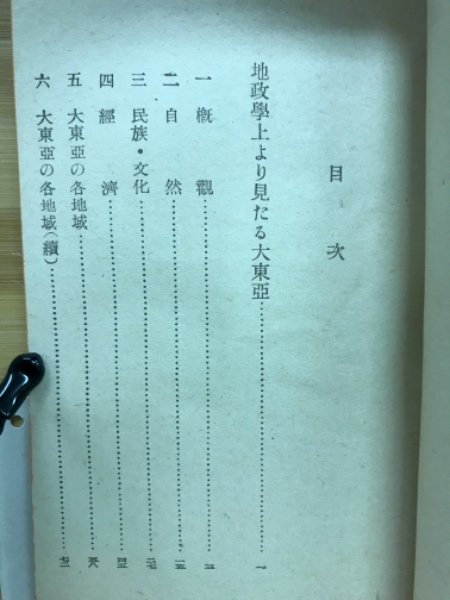 目次
地政學上より見たる大東亞……一
一 槪觀
二 自然
三 民族・文化
四 經濟
五 大東亞の各地域
六 大東亞の各地域(續)